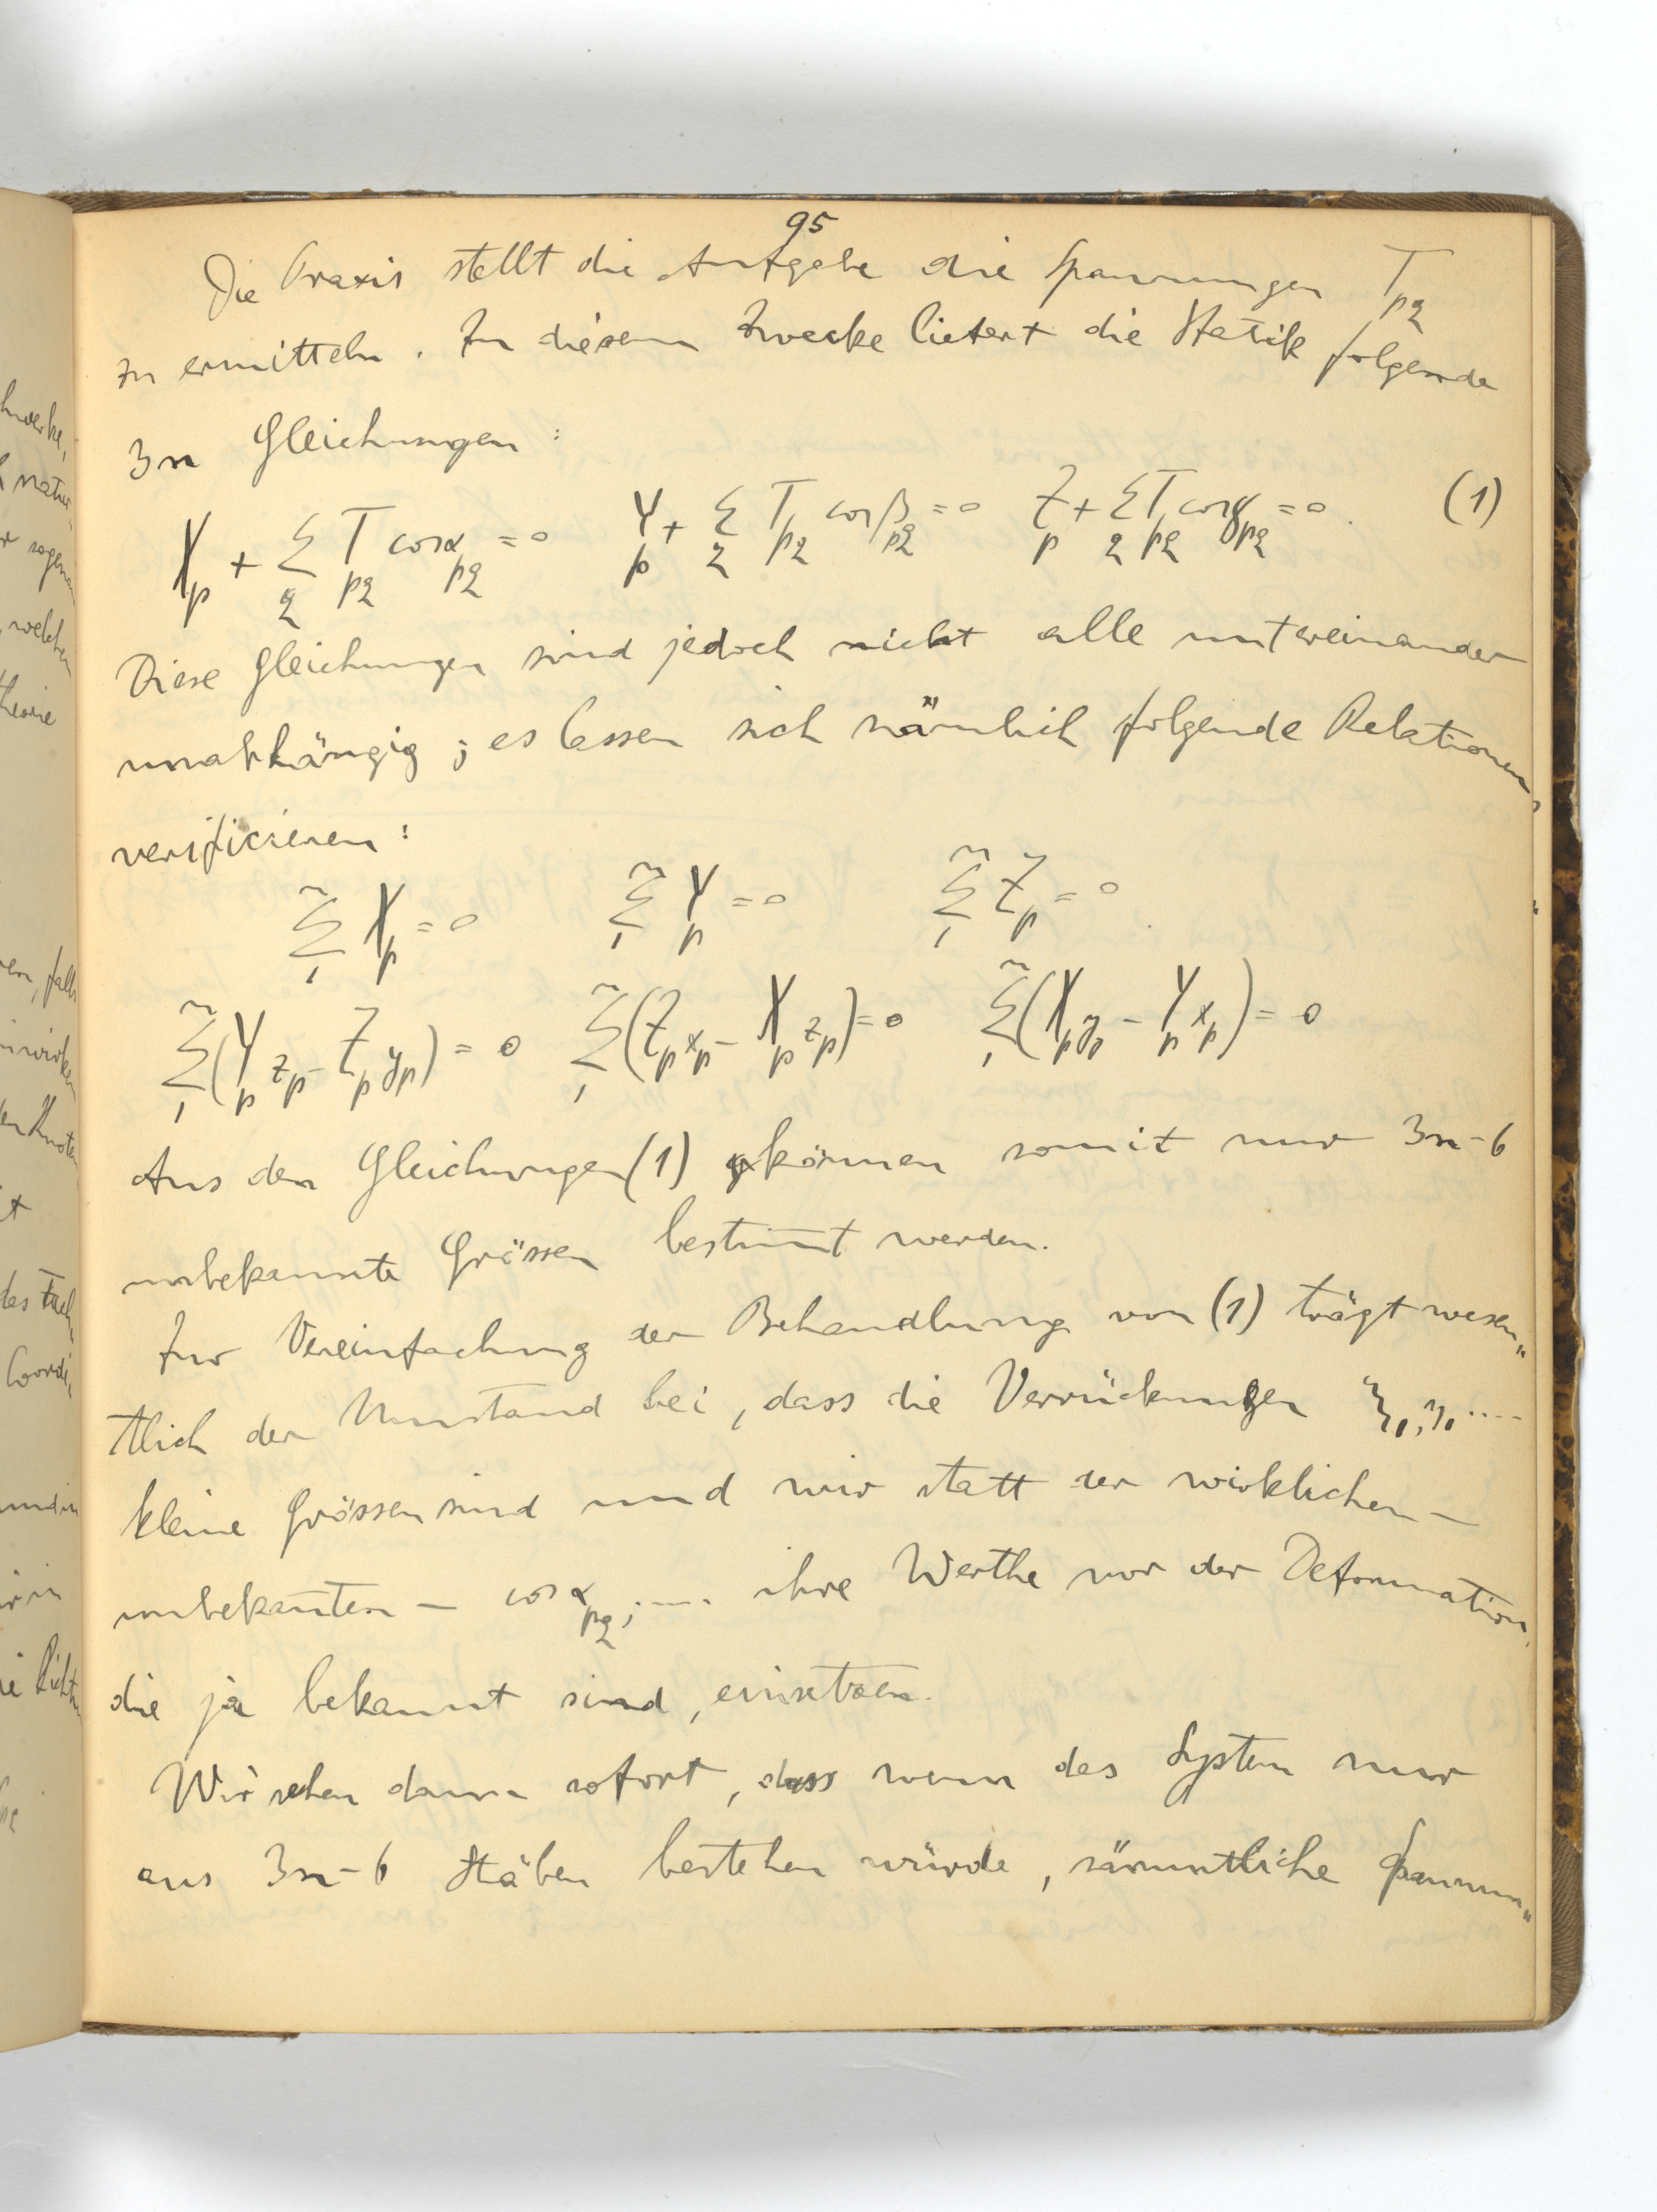 95
Die Praxis stellt die Aufgabe die Spannungen T_pq
zu ermitteln. Zu diesem Zwecke liefert die Statik folgende
3n Gleichungen:
X_p + Σ_q T_pq cosα_pq = 0   Y_p + Σ_q T_pq cosβ_pq = 0   Z_p + Σ_q T_pq cosγ_pq = 0.   (1)
Diese Gleichungen sind jedoch nicht alle untereinander
unabhängig; es lassen sich nämlich folgende Relationen
verificieren:
Σ_1^n X_p = 0   Σ_1^n Y_p = 0   Σ_1^n Z_p = 0
Σ_1^n (Y_p z_p - Z_p y_p) = 0   Σ_1^n (Z_p x_p - X_p z_p) = 0   Σ_1^n (X_p y_p - Y_p x_p) = 0
Aus den Gleichungen (1) können somit nur 3n-6
unbekannte Grössen bestim̅t werden.
Zur Vereinfachung der Behandlung von (1) trägt wesen„
tlich der Umstand bei, dass die Verrückungen ξ_p, η_p ....
kleine Grössen sind und wir statt der wirklichen –
unbekan̅ten – cosα_pq, .... ihre Werthe vor der Deformation,
die ja bekannt sind, einsetzen.
Wir sehen dann sofort, dass wenn das System nur
aus 3n-6 Stäben bestehen würde, sämmtliche Spannun„
hwerke,
welchen
theorie
falls
inwirken
den Knoten
it
Coordi„